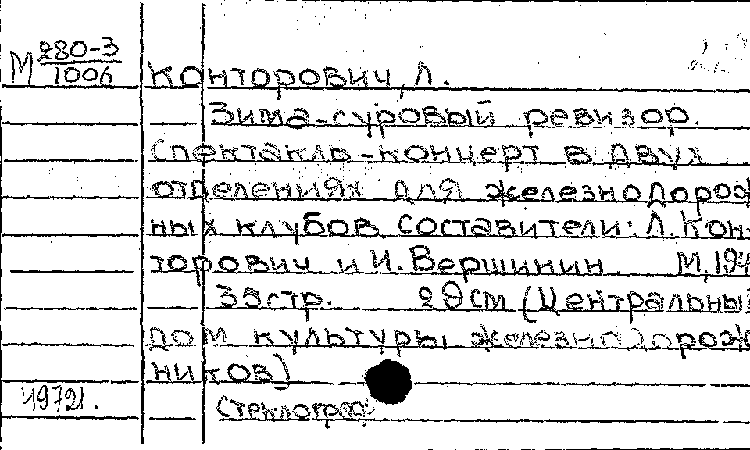 М 280-3
1006
Конторович, Л.
Зима-суровый ревизор.
Спектакль-концерт в двух
отделениях для железнодорож
ных клубов. Составители: Л. Кон-
торович и И. Вершинин. М, 194
33стр. 29см (Центральный
дом культуры железнодорож
ников)
49721.
Стеклограф